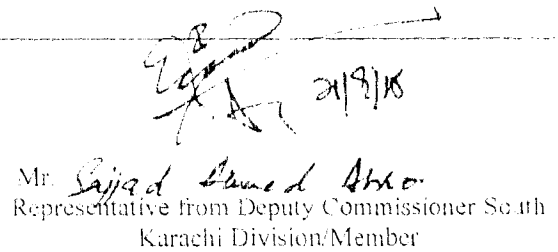 21/8/18
Mr. Sajjad Ahmed Abro
Representative from Deputy Commissioner South
Karachi Division/Member